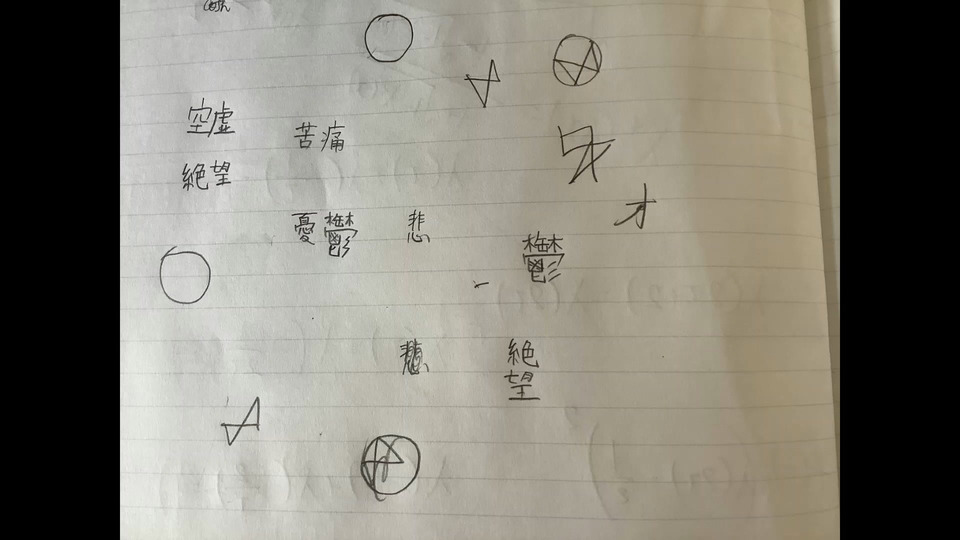 空虚
苦痛
絶望
才
憂鬱
悲
鬱
絶
望